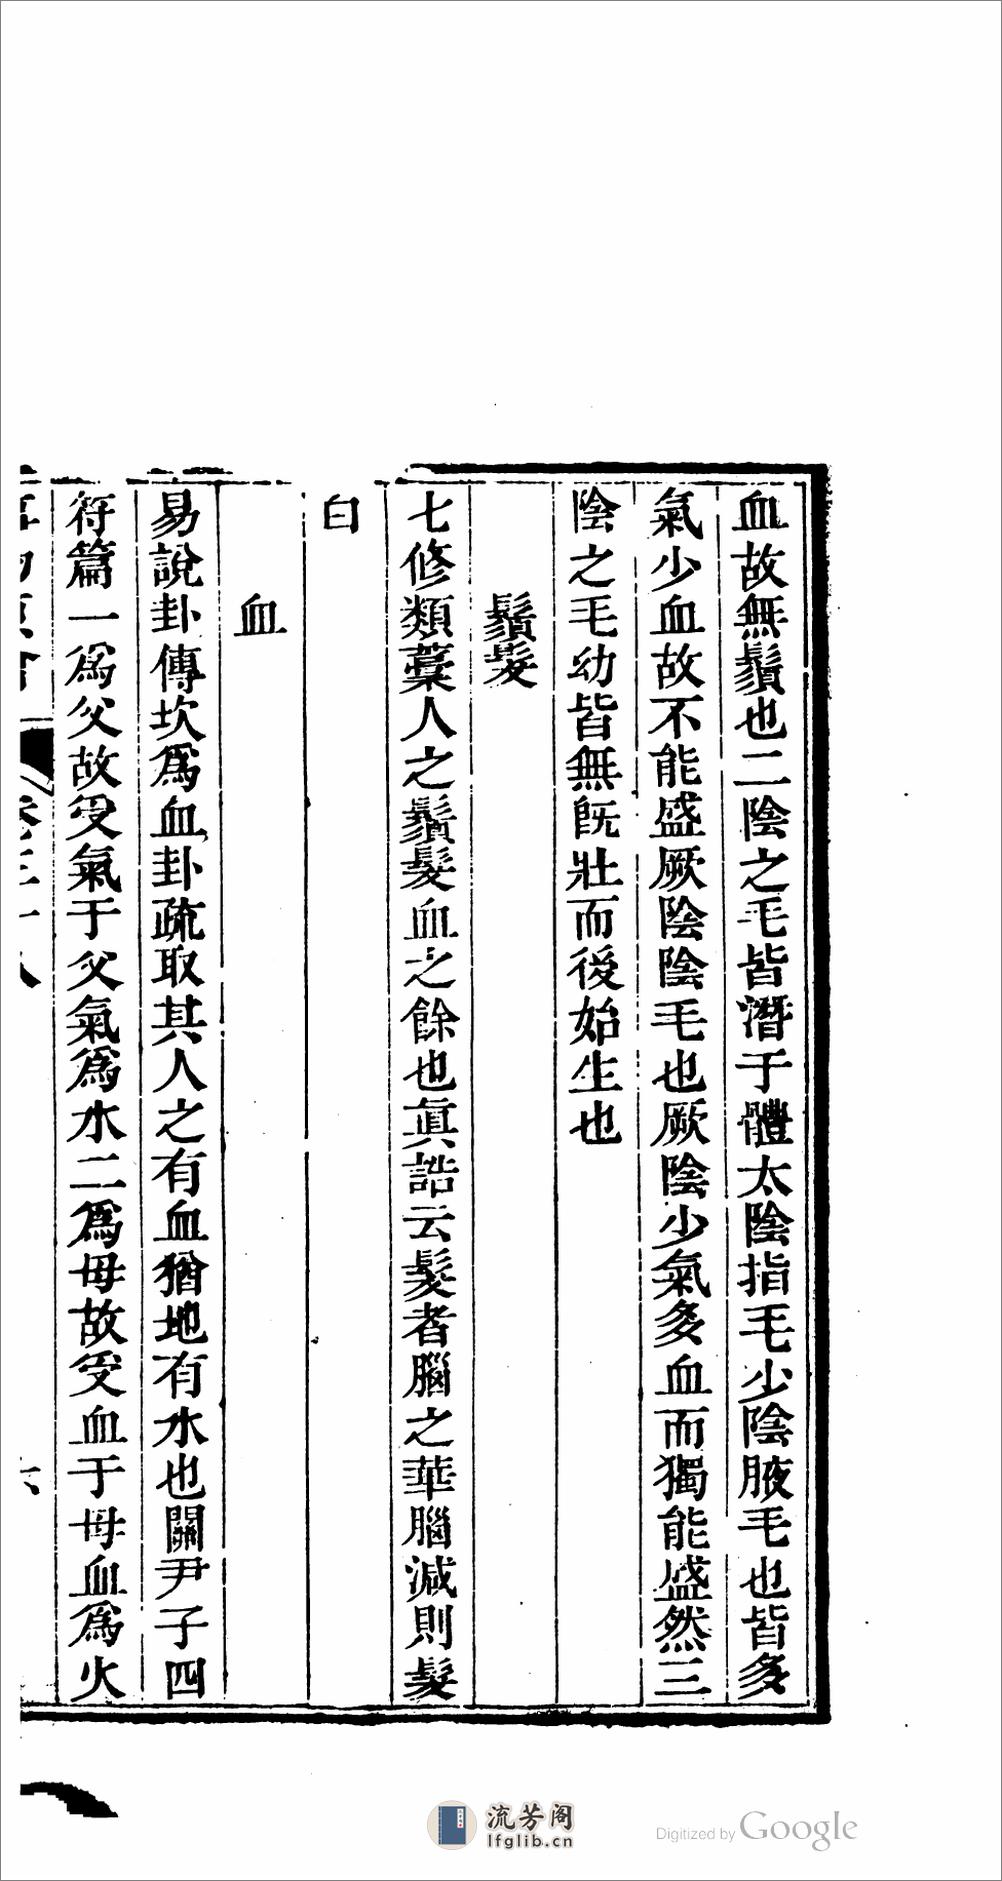 血故無鬚也二陰之毛皆潛于體太陰指毛少陰腋毛也皆多
氣少血故不能盛厥陰陰毛也厥陰少氣多血而獨能盛然三
陰之毛幼皆無旣壯而後始生也
鬚髮
七修類藁人之鬚髮血之餘也眞誥云髮者腦之華腦減則髮
白
血
易說卦傳坎爲血卦疏取其人之有血猶地有水也關尹子四
符篇一爲父故受氣于父氣爲水二爲母故受血于母血爲火
卷三十八
六
流芳阁
lfglib.cn
Digitized by Google